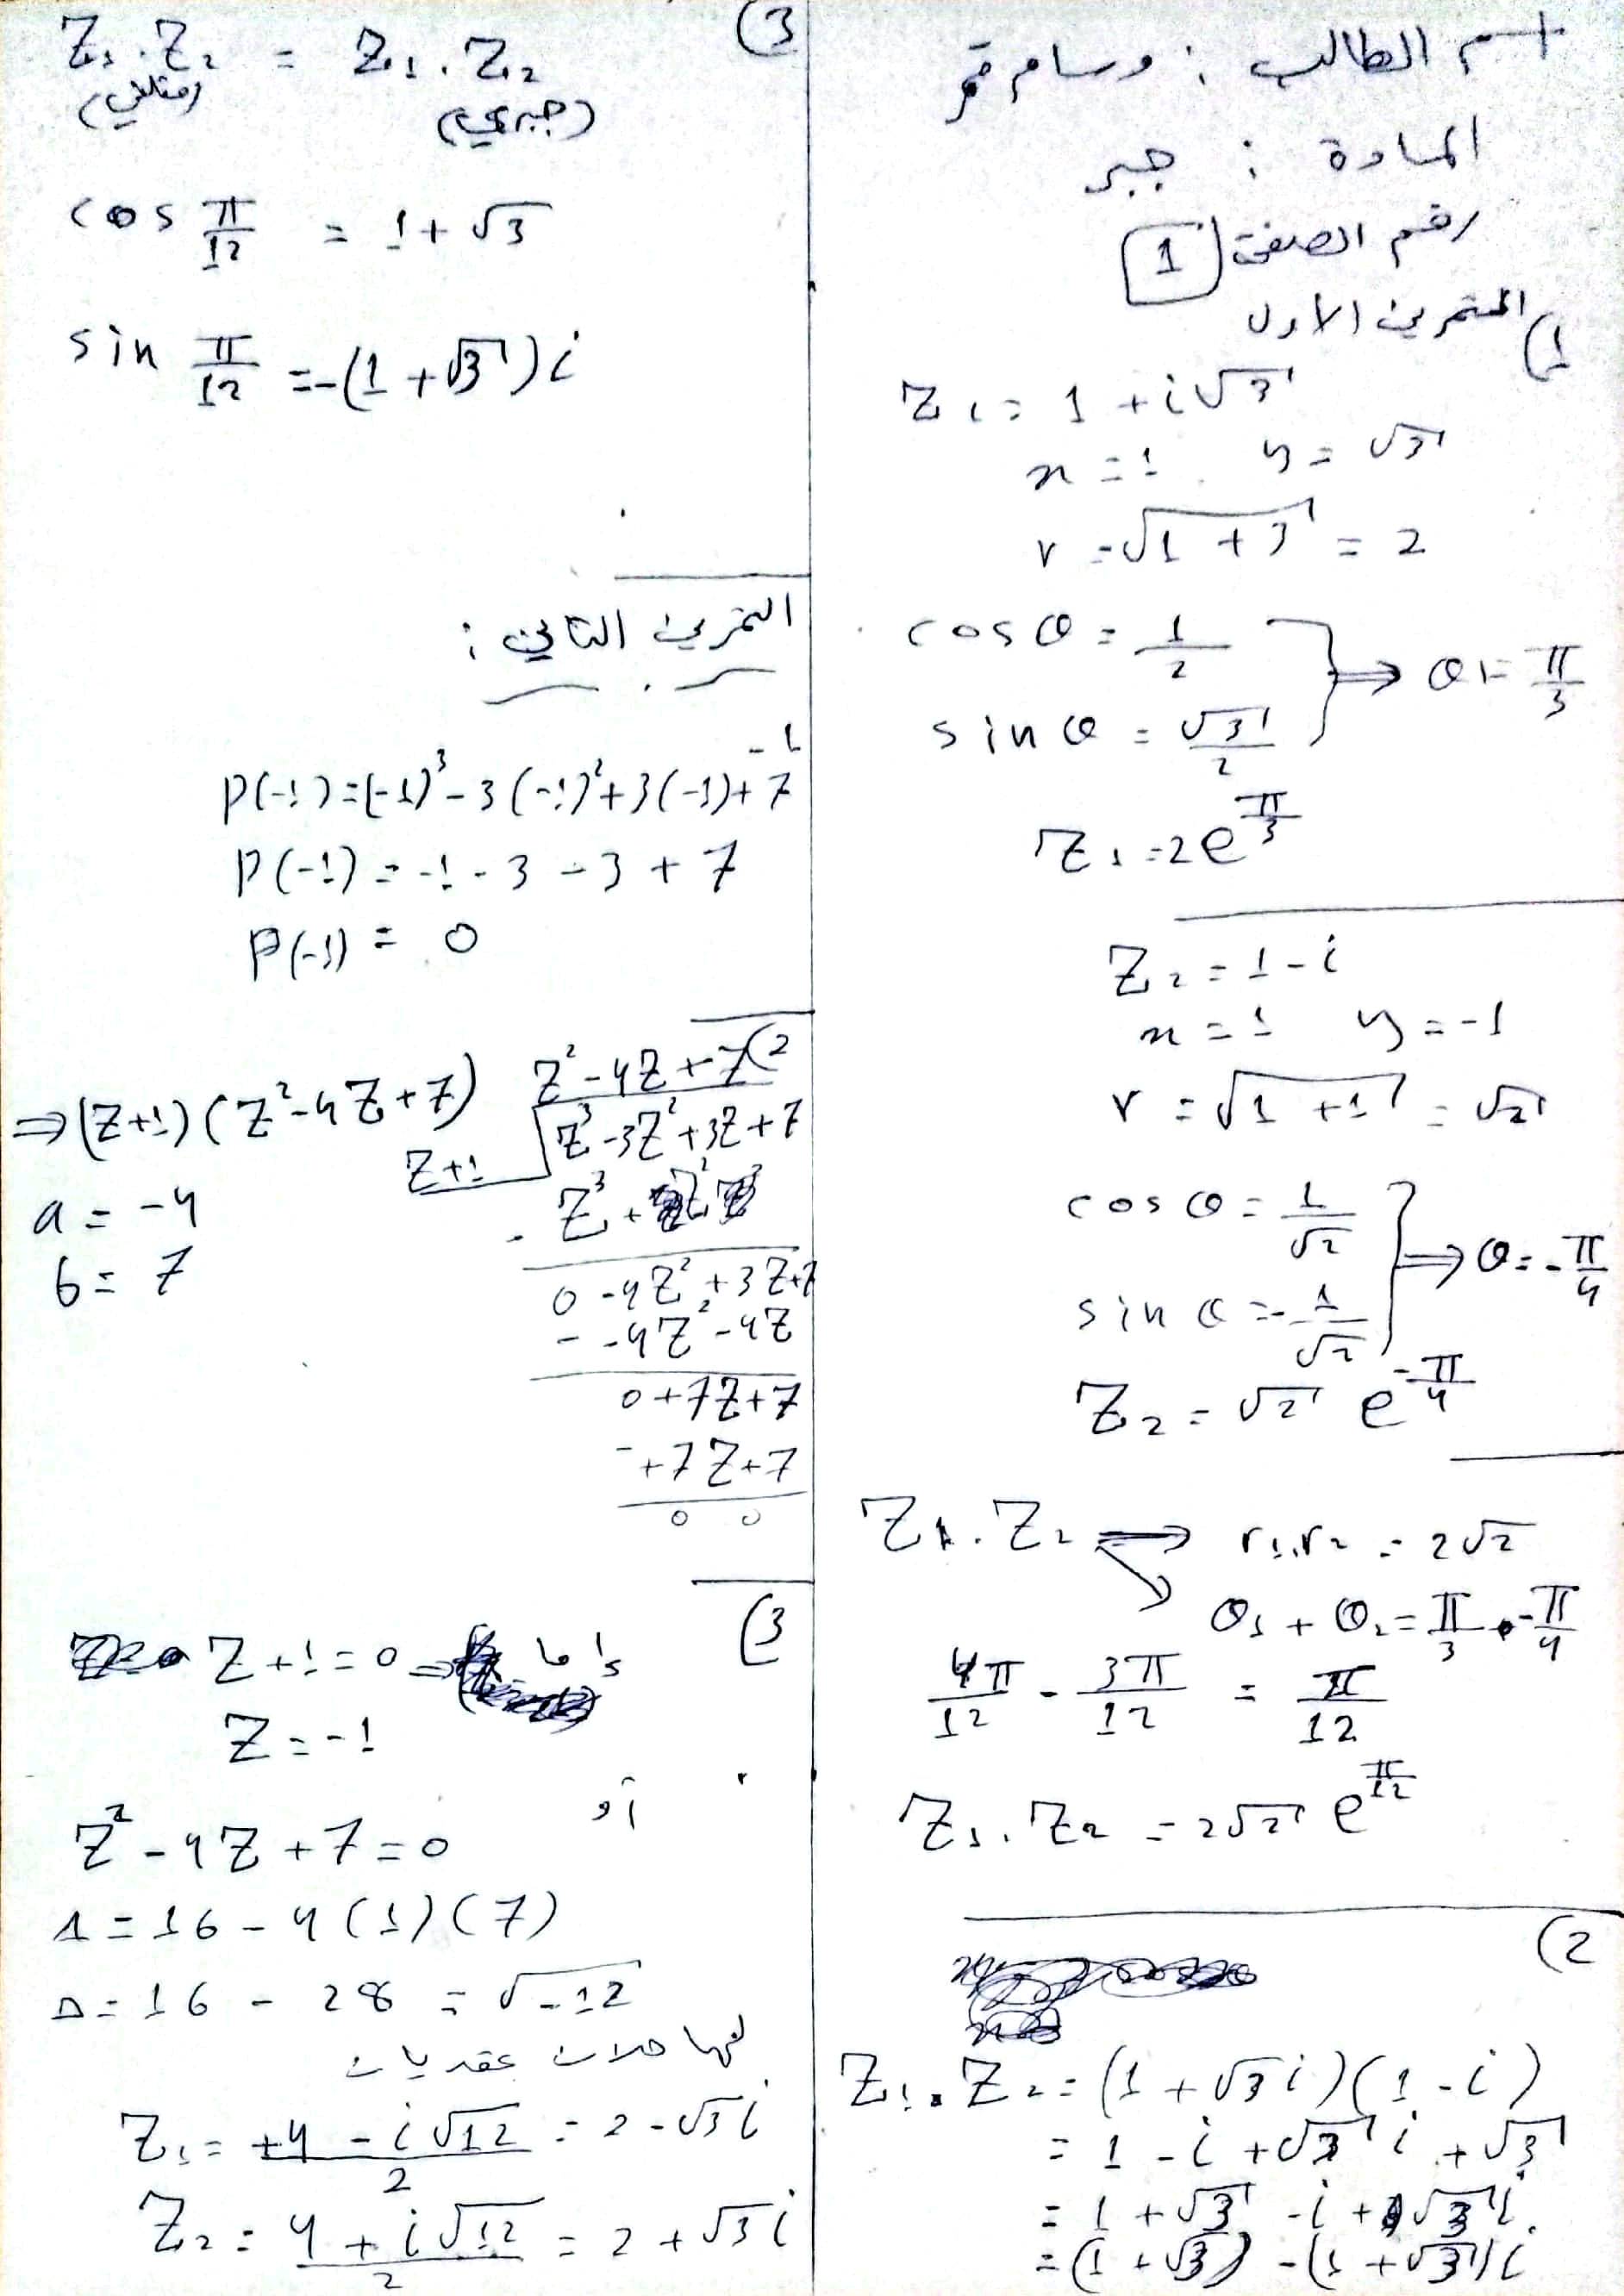 اسم الطالب : وسام قمر
المادة : جبر
رقم الصفحة 1
1) التمرين الاول
Z₁ = 1 + i√3
x = 1 y = √3
r = √1 + 3 = 2
cos θ = 1/2
sin θ = √3/2
⇒ θ1 = π/3
Z₁ = 2e^π/3
Z₂ = 1 - i
x = 1 y = -1
r = √1 + 1 = √2
cos θ = 1/√2
sin θ = -1/√2
⇒ θ = -π/4
Z₂ = √2 e^-π/4
Z₁ . Z₂ ⇒ r₁.r₂ = 2√2
θ₁ + θ₂ = π/3 + -π/4
4π/12 - 3π/12 = π/12
Z₁ . Z₂ = 2√2 e^π/12
2)
Z₁ . Z₂ = (1 + √3 i)(1 - i)
= 1 - i + √3 i + √3
= 1 + √3 - i + √3 i
= (1 + √3) - (1 + √3) i
3)
Z₁ . Z₂ = Z₁ . Z₂
(مثلثي) (جبري)
cos π/12 = 1 + √3
sin π/12 = -(1 + √3) i
التمرين الثاني :
-1
P(-1) = (-1)³ - 3(-1)² + 3(-1) + 7
P(-1) = -1 - 3 - 3 + 7
P(-1) = 0
2)
Z² - 4Z + 7
Z+1 Z³ - 3Z² + 3Z + 7
- Z³ + Z²
0 - 4Z² + 3Z + 7
- -4Z² - 4Z
0 + 7Z + 7
- +7Z + 7
0 0
⇒ (Z+1)(Z² - 4Z + 7)
a = -4
b = 7
3)
إما Z + 1 = 0 ⇒
Z = -1
أو
Z² - 4Z + 7 = 0
Δ = 16 - 4(1)(7)
Δ = 16 - 28 = √-12
لها حلان عقديان
Z₁ = +4 - i√12/2 = 2 - √3 i
Z₂ = 4 + i√12/2 = 2 + √3 i